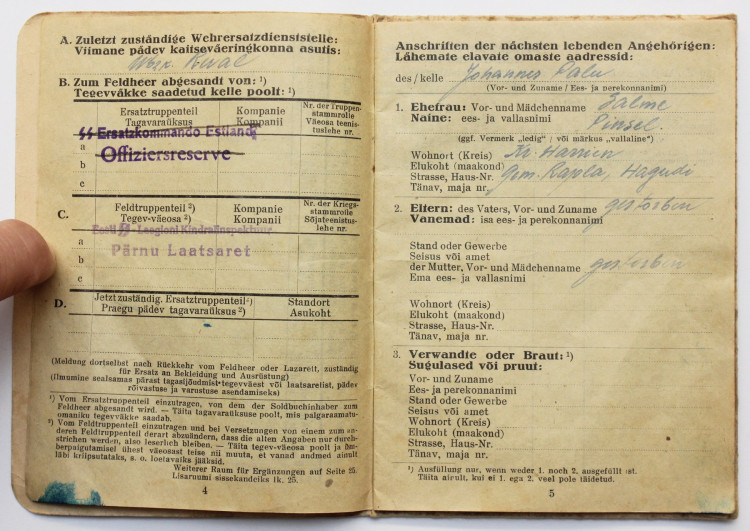 A. Zuletzt zuständige Wehrersatzdienststelle:
Viimane pädev kaitseväeringkonna asutis:
Reval
B. Zum Feldheer abgesandt von: ¹)
Tegevväkke saadetud kelle poolt: ¹)
Ersatztruppenteil
Tagavaraüksus
Kompanie
Kompanii
Nr. der Truppen-
stammrolle
Väeosa temis-
tuslehe nr.
a
ᛋᛋ Ersatzkommando Estland
Offiziersreserve
b
c
C.
Feldtruppenteil ²)
Tegev-väeosa ²)
Kompanie
Kompanii
Nr. der Kriegs-
stammrolle
Sõjateenistus-
lehe nr.
a
Eesti ᛋᛋ Leegioni Kindralinspektuur
Pärnu Laatsaret
b
c
D.
Jetzt zuständig. Ersatztruppenteil ²)
Praegu pädev tagavaraüksus ²)
Standort
Asukoht
(Meldung dortselbst nach Rückkehr vom Feldheer oder Lazarett, zuständig
für Ersatz an Bekleidung und Ausrüstung)
(Ilmumine sealsamas pärast tagasijõudmist tegevväest või laatsaretist, pädev
rõivastuse ja varustuse asendamiseks)
¹) Vom Ersatztruppenteil einzutragen, von dem der Soldbuchinhaber zum
Feldheer abgesandt wird. — Täita tagavaraüksuse poolt, mis palgaraamatu-
omaniku tegevväkke saadab.
²) Vom Feldtruppenteil einzutragen und bei Versetzungen von einem zum an-
deren Feldtruppenteil derart abzuändern, dass die alten Angaben nur durch-
strichen werden, also leserlich bleiben. — Täita tegev-väeosa poolt ja üm-
berpaigutamisel ühest väeosast teise nii muuta, et vanad andmed ainult
läbi kriipsutataks, s. o. loetavaiks jääksid.
Weiterer Raum für Ergänzungen auf Seite 25.
Lisaruumi sissekandeiks lk. 25.
4
Anschriften der nächsten lebenden Angehörigen:
Lähemate elavate omaste aadressid:
des / kelle Johannes Palu
(Vor- und Zuname / Ees- ja perekonnanimi)
1. Ehefrau: Vor- und Mädchenname Salme
Naine: ees- ja vallasnimi Pinsel.
(ggf. Vermerk „ledig" / või märkus „vallaline")
Wohnort (Kreis) Kr. Harrien
Elukoht (maakond)
Strasse, Haus-Nr. Gem. Rapla, Hagudi
Tänav, maja nr.
2. Eltern: des Vaters, Vor- und Zuname gestorben
Vanemad: isa ees- ja perekonnanimi
Stand oder Gewerbe
Seisus või amet
der Mutter, Vor- und Mädchenname gestorben
Ema ees- ja vallasnimi
Wohnort (Kreis)
Elukoht (maakond)
Strasse, Haus-Nr.
Tänav, maja nr.
3. Verwandte oder Braut: ¹)
Sugulased või pruut:
Vor- und Zuname
Ees- ja perekonnanimi
Stand oder Gewerbe
Seisus või amet
Wohnort (Kreis)
Elukoht (maakond)
Strasse, Haus-Nr.
Tänav, maja nr.
¹) Ausfüllung nur, wenn weder 1. noch 2. ausgefüllt ist.
Täita ainult, kui ei 1. ega 2. veel pole täidetud.
5